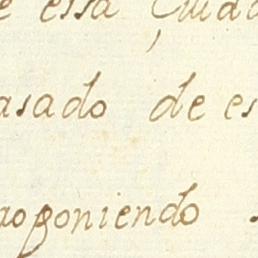 e essa Ciuda
asado de es
oponiendo